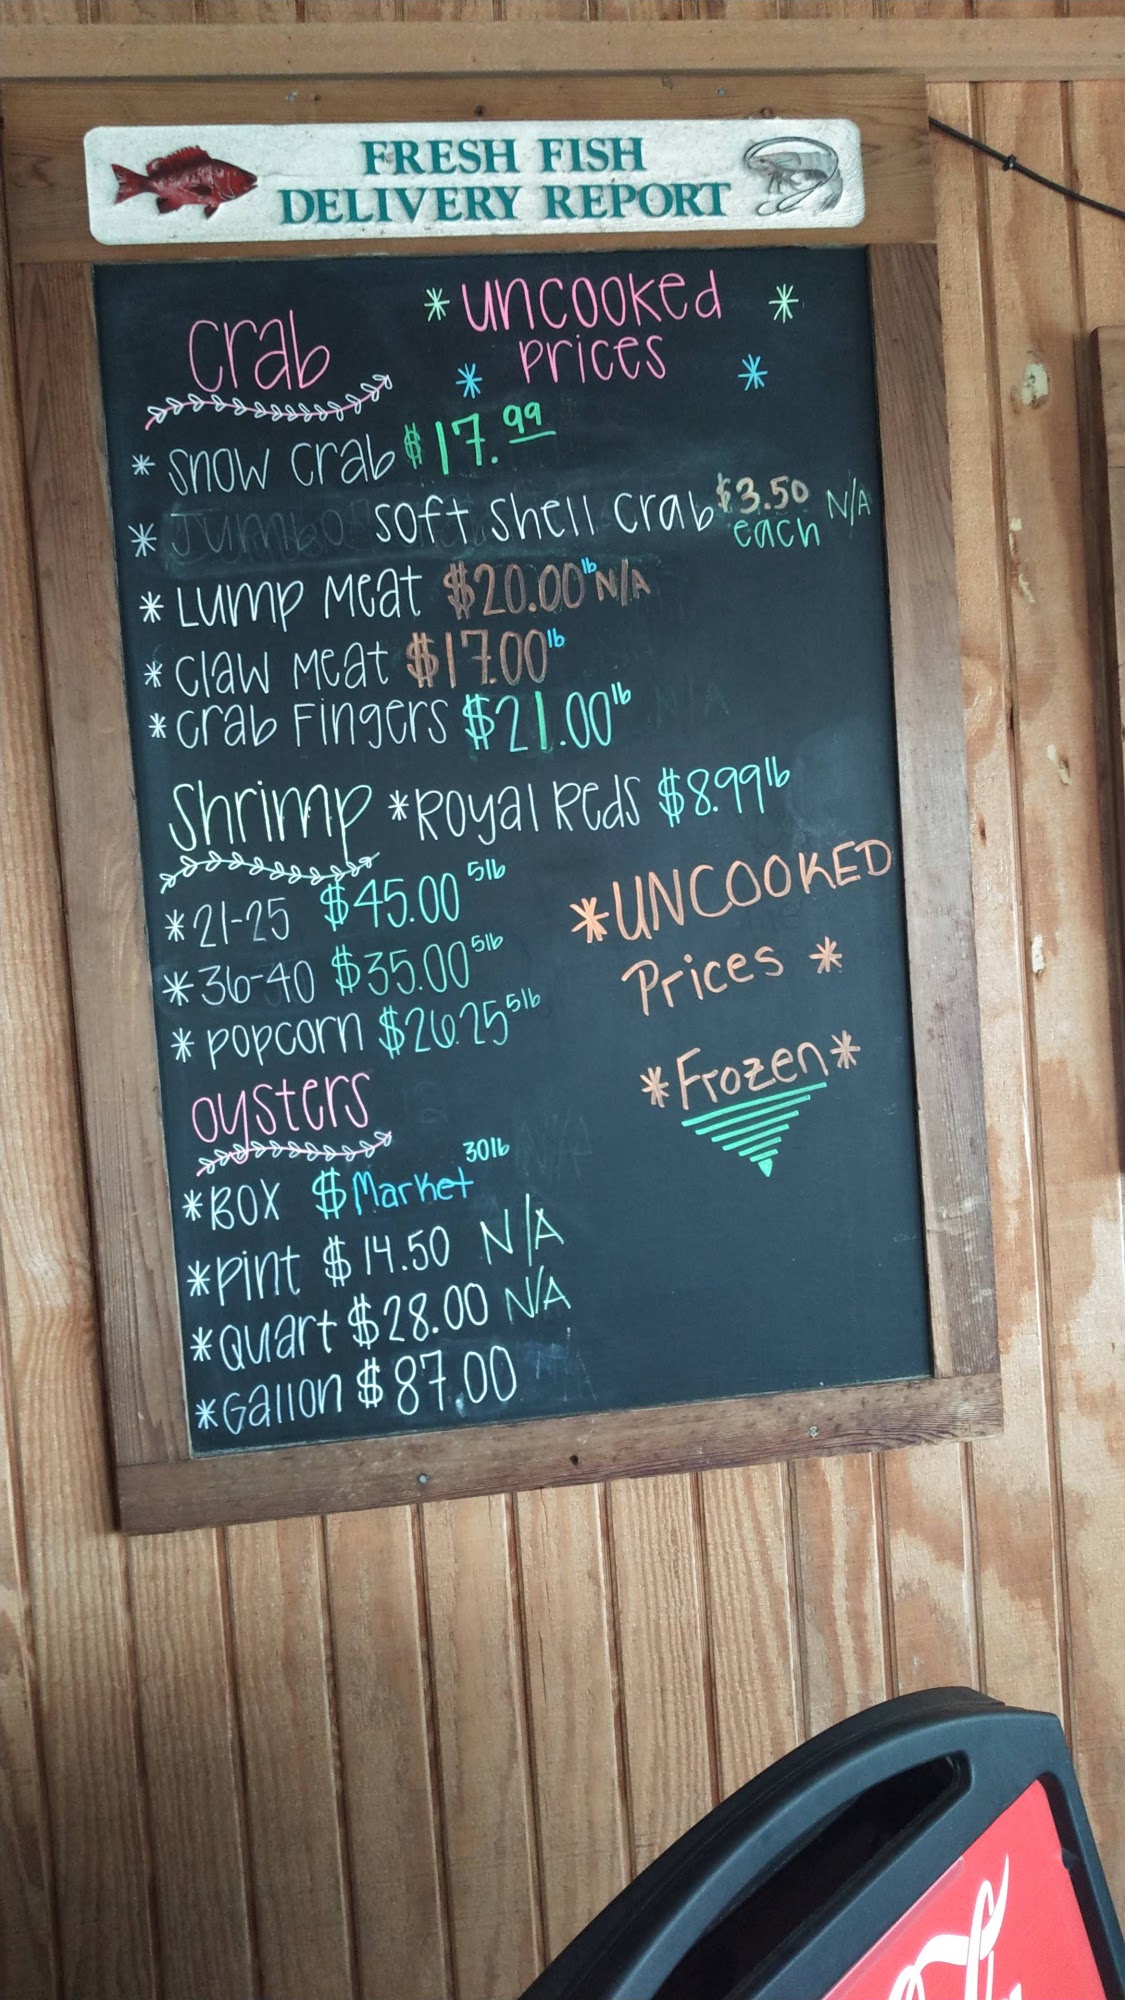 FRESH FISH
DELIVERY REPORT
Crab
* uncooked *
* prices *
* Snow Crab $17.99
* Jumbo Soft Shell Crab $3.50 each N/A
* Lump Meat $20.00 lb N/A
* Claw Meat $17.00 lb
* Crab Fingers $21.00 lb
Shrimp * Royal Reds $8.99 lb
* 21-25 $45.00 5lb
* 36-40 $35.00 5lb
* Popcorn $26.25 5lb
*UNCOOKED
Prices *
*Frozen*
Oysters
* Box $ Market 30lb
* Pint $14.50 N/A
* Quart $28.00 N/A
* Gallon $87.00